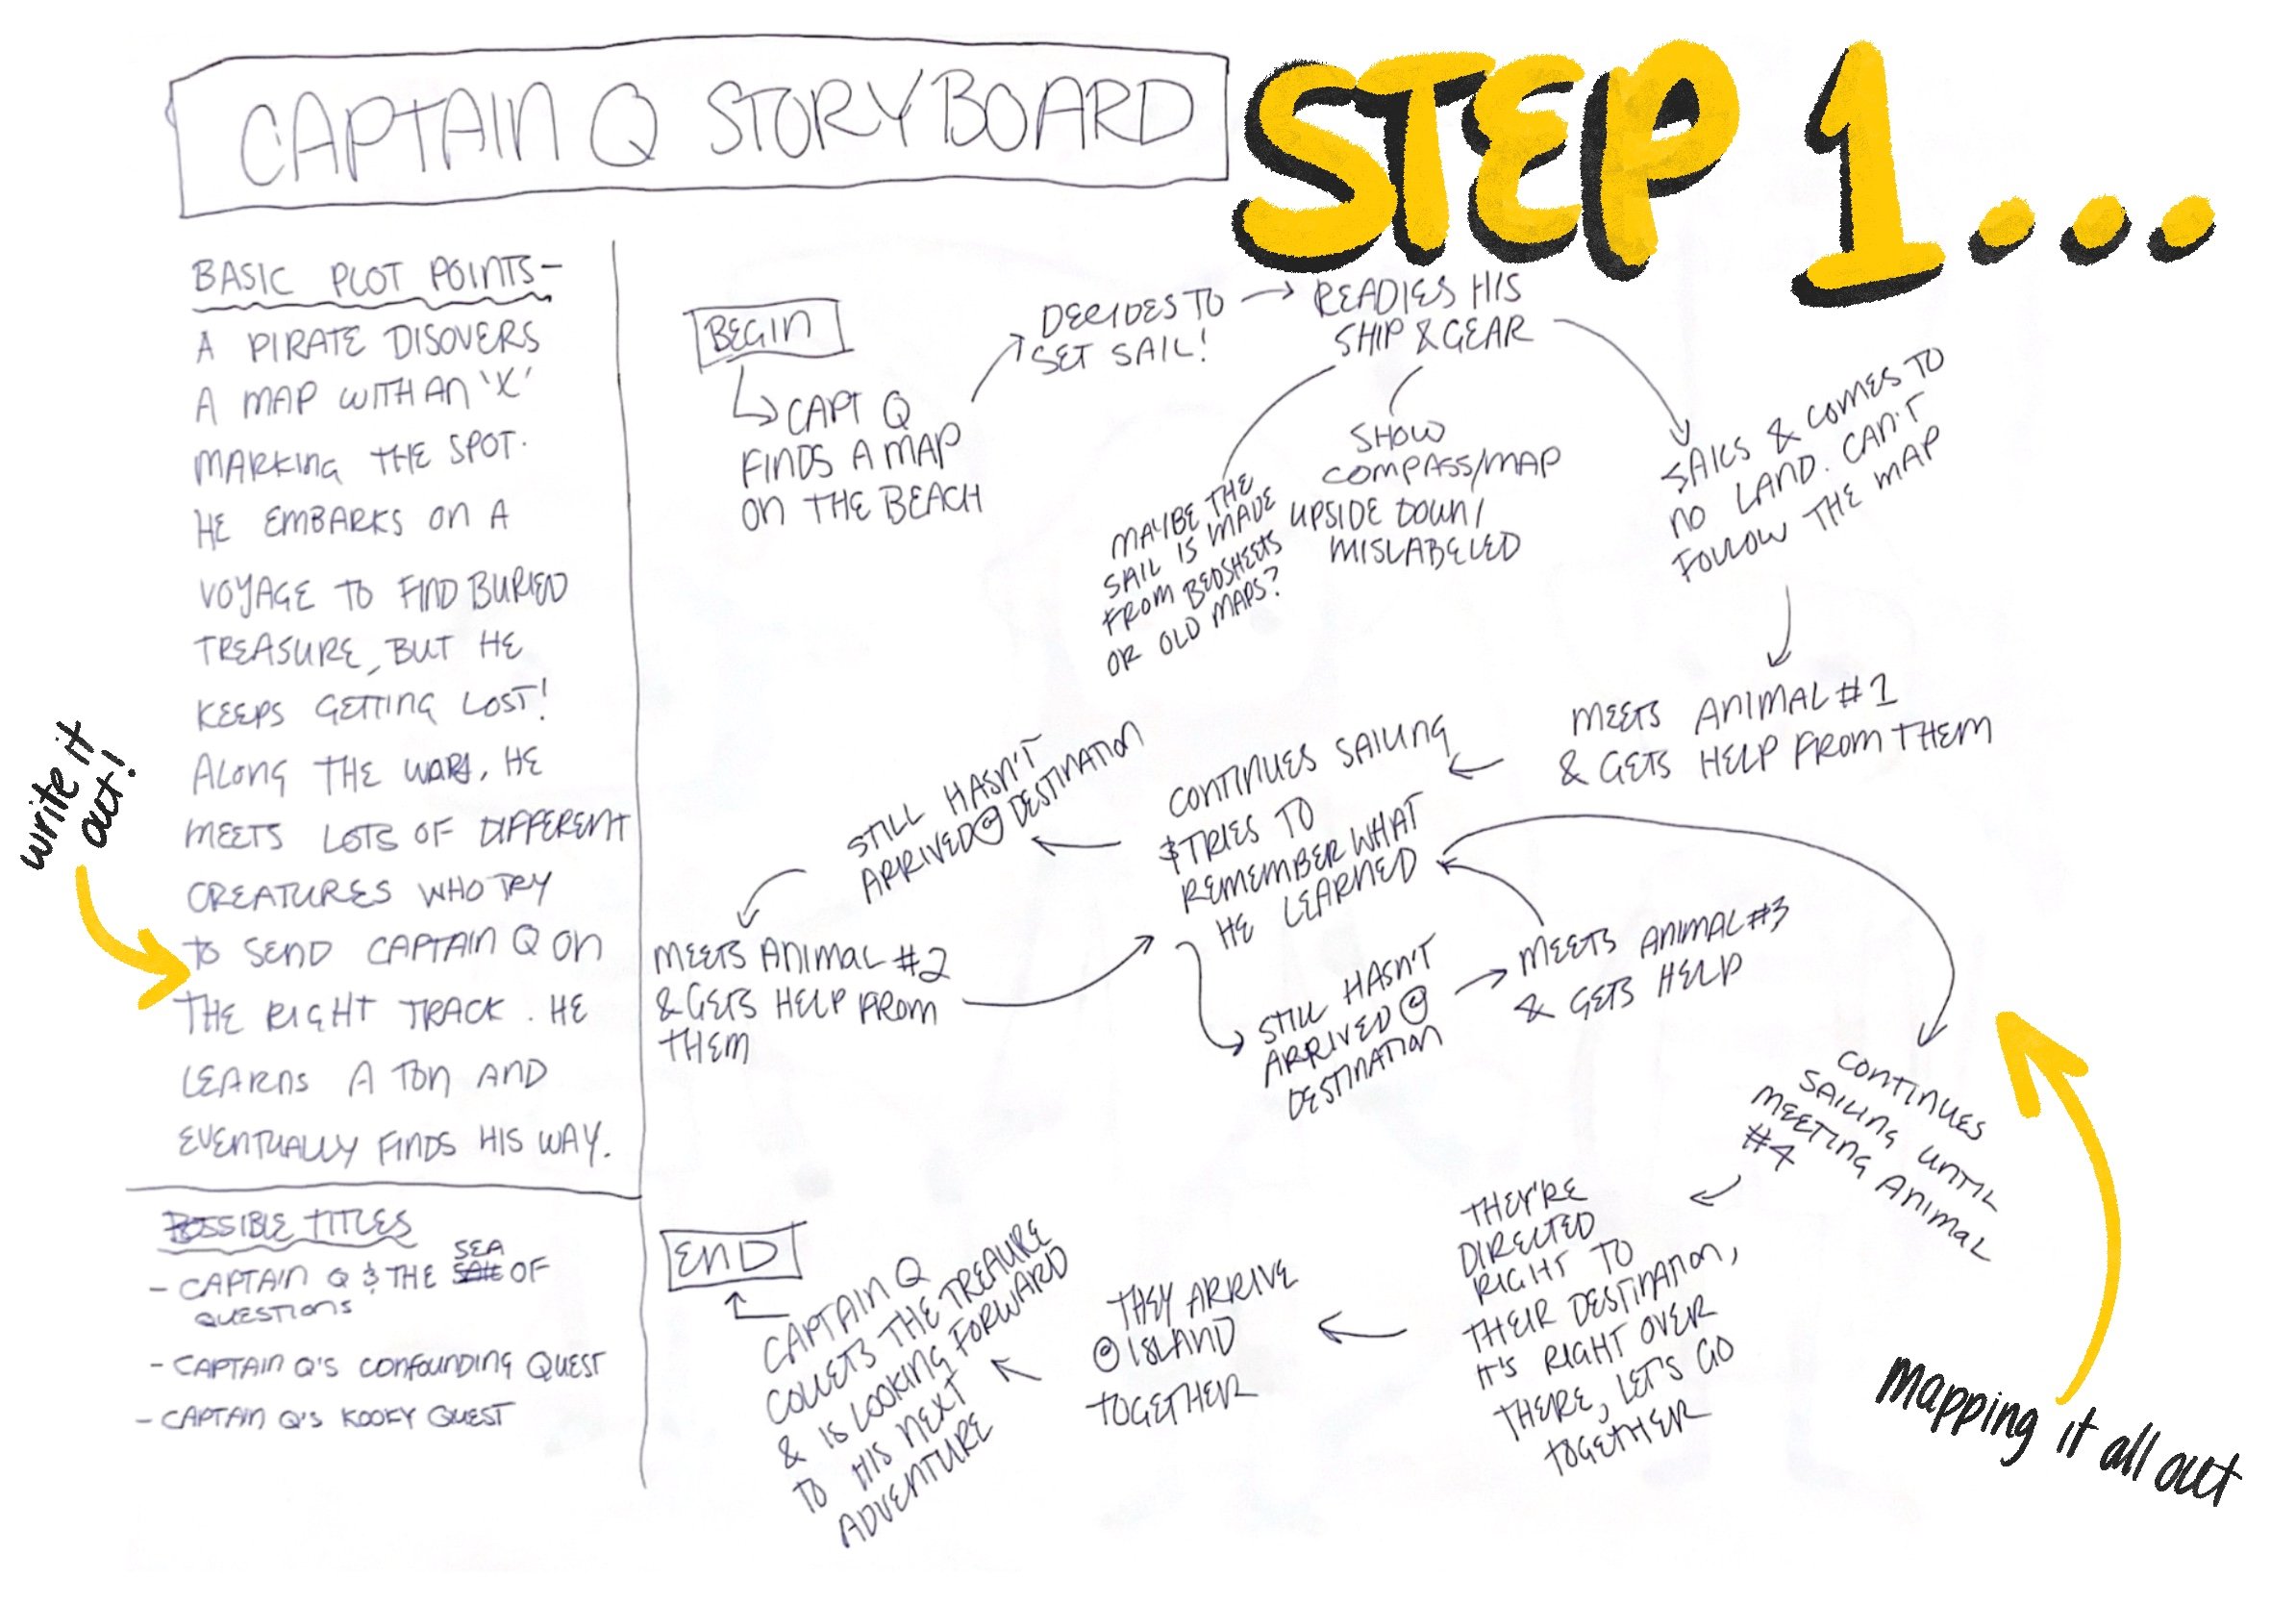 CAPTAIN Q STORYBOARD
STEP 1...
BASIC PLOT POINTS-
A PIRATE DISOVERS
A MAP WITH AN 'X'
MARKING THE SPOT.
HE EMBARKS ON A
VOYAGE TO FIND BURIED
TREASURE, BUT HE
KEEPS GETTING LOST!
ALONG THE WAY, HE
MEETS LOTS OF DIFFERENT
CREATURES WHO TRY
TO SEND CAPTAIN Q ON
THE RIGHT TRACK. HE
LEARNS A TON AND
EVENTUALLY FINDS HIS WAY.
write it
out!
POSSIBLE TITLES
- CAPTAIN Q & THE SEA OF
QUESTIONS
- CAPTAIN Q'S CONFOUNDING QUEST
- CAPTAIN Q'S KOOKY QUEST
BEGIN
CAPT Q
FINDS A MAP
ON THE BEACH
DECIDES TO
SET SAIL!
READIES HIS
SHIP & GEAR
MAYBE THE
SAIL IS MADE
FROM BEDSHEETS
OR OLD MAPS?
SHOW
COMPASS/MAP
UPSIDE DOWN/
MISLABELED
SAILS & COMES TO
NO LAND. CAN'T
FOLLOW THE MAP
MEETS ANIMAL #1
& GETS HELP FROM THEM
CONTINUES SAILING
& TRIES TO
REMEMBER WHAT
HE LEARNED
STILL HASN'T
ARRIVED @ DESTINATION
MEETS ANIMAL #2
& GETS HELP FROM
THEM
STILL HASN'T
ARRIVED @
DESTINATION
MEETS ANIMAL #3
& GETS HELP
CONTINUES
SAILING UNTIL
MEETING ANIMAL
#4
THEY'RE
DIRECTED
RIGHT TO
THEIR DESTINATION,
IT'S RIGHT OVER
THERE, LET'S GO
TOGETHER
THEY ARRIVE
@ ISLAND
TOGETHER
CAPTAIN Q
COLLETS THE TREAURE
& IS LOOKING FORWARD
TO HIS NEXT
ADVENTURE
END
mapping it all out